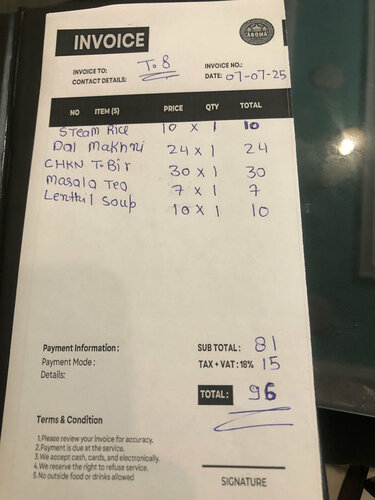 INVOICE
AROMA
INVOICE TO: T.8
INVOICE NO.:
CONTACT DETAILS:
DATE: 07-07-25
NO ITEM(S) PRICE QTY TOTAL
STeam Rice 10 x 1 10
Dal Makhni 24 x 1 24
CHKN T.Bir 30 x 1 30
Masala Tea 7 x 1 7
Lenthil Soup 10 x 1 10
Payment Information:
Payment Mode:
Details:
SUB TOTAL: 81
TAX + VAT: 18% 15
TOTAL: 96
Terms & Condition
1.Please review your invoice for accuracy.
2.Payment is due at the service.
3.We accept cash, cards, and electronically.
4.We reserve the right to refuse service.
5.No outside food or drinks allowed
SIGNATURE